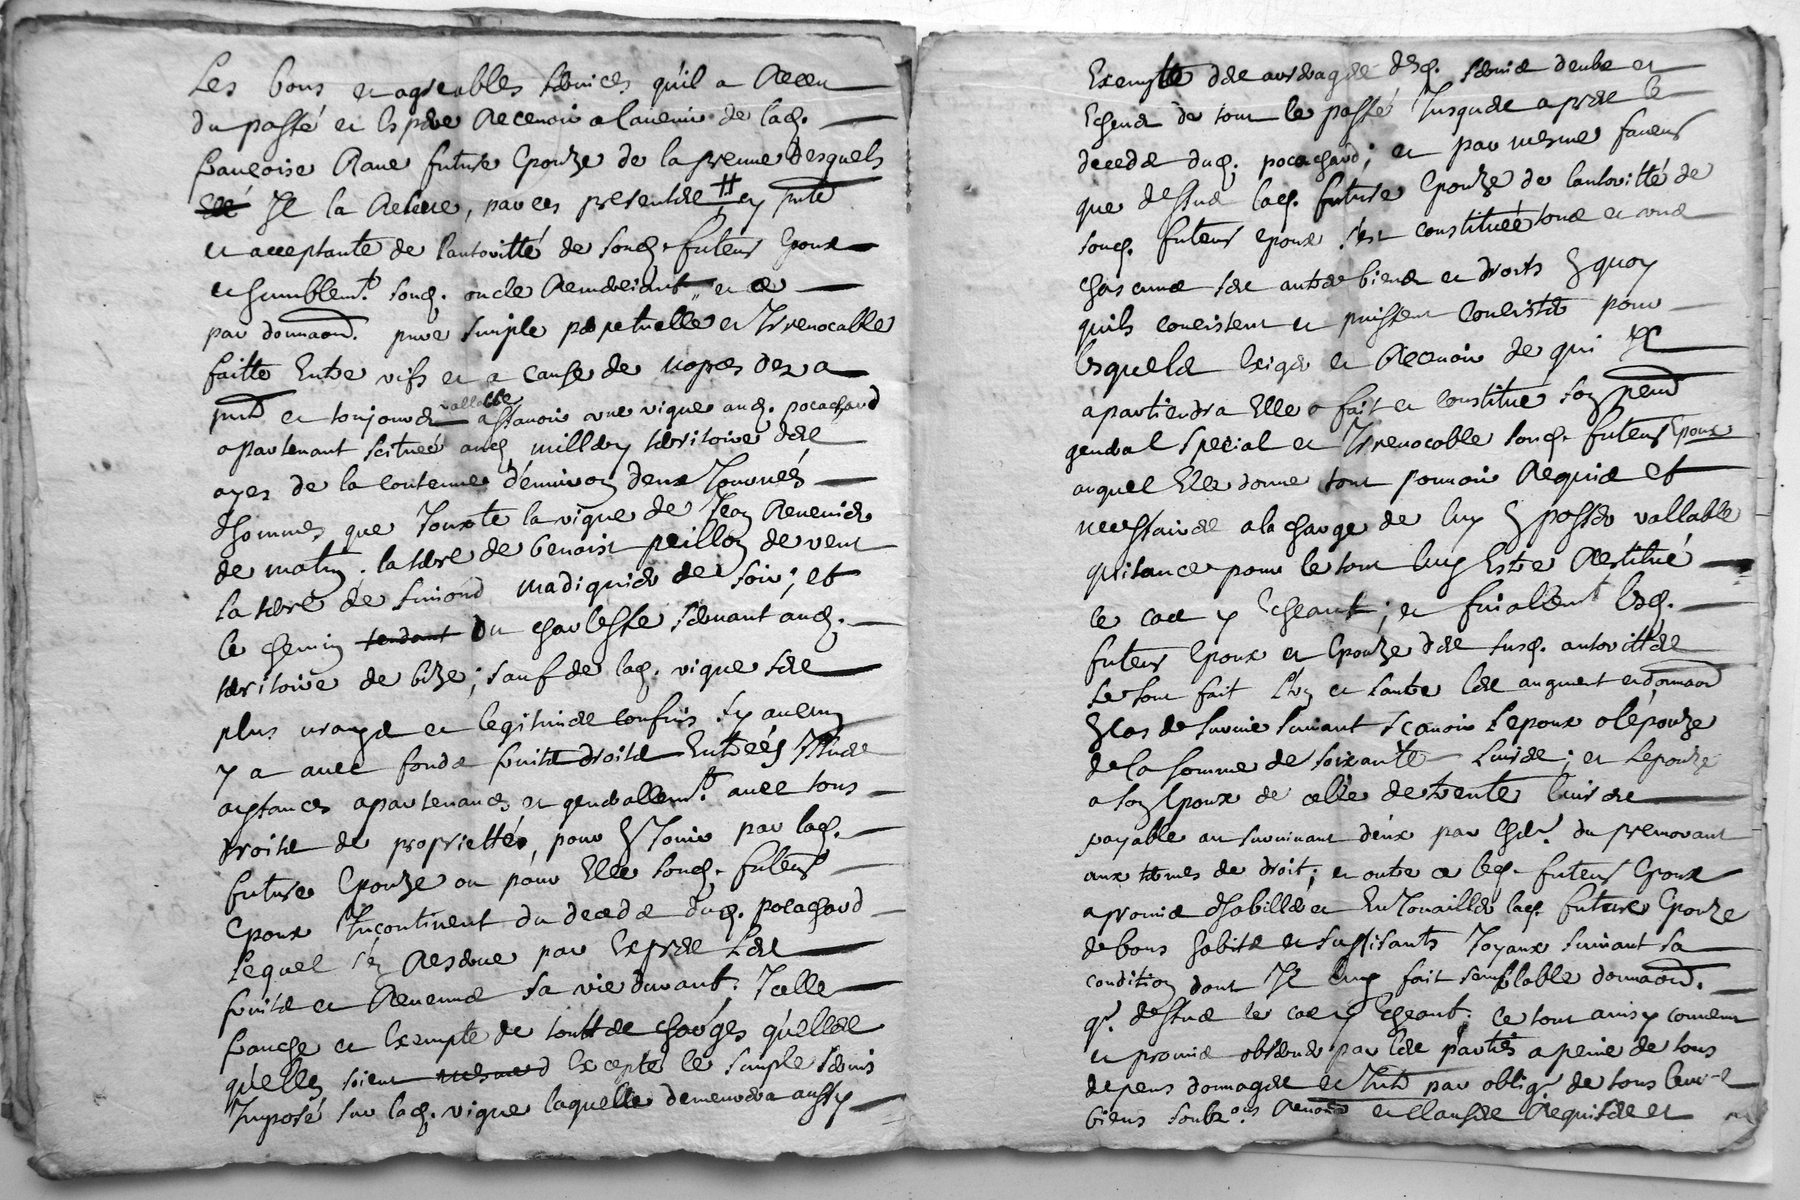 Les bons et agreables services qu'il a Receu
du passé et Espere Recevoir a l'avenir de lad.
francoise Rave future Epouze de la preuve desquels
Il la Releve, par ces presentes # et pnte
et acceptante de l'autoritté de sond. futeur Epoux
et semblemt. sond. oncle Remerciant et ce
par donnaon. pure simple perpetuelle et Irrevocable
faitte Entre vifs et a cause de nopces dez a
pnt et toujours vallable assavoir une vigne aud. pocachard
apartenant scituée aud. millery territoire des
ayes de la contenue d'environ deux Journés
d'hommes que Jouxte la vigne de Jean Revenier
de matin. la terre de benoist peillon de vent
la terre de simond madiguier de soir; et
le chemin tendant du charleste servant aud.
territoire de bize; sauf de lad. vigne ses
plus vrayes et legitimes confins s'y aucun
y a avec fonds fruits droits Entrées Issues
aysances apartenances et generallemt. avec tous
droits de propriettés, pour En Jouir par lad.
future Epouze ou pour Elle sond. futeur
Epoux Incontinent du decedz dud. pocachard
Lequel s'en Reserve par Exprès Les
fruits et Revenus sa vie durant; Icelle
franche et Exempte de touttes charges qu'elles
qu'elles soient Excepté le simple servis
Imposé sur lad. vigne laquelle demeurera aussy
Exempte des arrerages desd. servis deubz et
Echeus de tout le passé Jusques apres le
decedz dud. pocachard; et par mesme faveur
que dessus lad. future Epouze de l'autoritté de
sond. futeur epoux s'est constituée tous et uns
chascuns ses autres biens et droits En quoy
quils concistent et puissent concister pour
lesquels Exiger et Recevoir de qui Il
apartiendra Elle a fait et constitué son preur
general special et Irrevocable sond. futeur Epoux
auquel Elle donne tout pouvoir Requis et
necessaires a la charge de luy En passer vallable
quitance pour le tout luy Estre Restitué
le cas y Echeant; et finallemt. lesd.
futeur Epoux et Epouze des susd. autorittés
se sont fait L'un et L'autre les augment et donnaon
En cas de survie suivant sçavoir l'epoux a l'epouze
de la somme de soixante Livres; et l'epouze
a son Epoux de celle de trente livres
payable au survivant d'eux par les hers. du premourant
aux termes de droit; et outre ce led. futeur Epoux
a promis d'habiller et En Jouailler lad. future Epouze
de bons habits et suffisants Joyaux suivant sa
condition dont Il luy fait semblable donnaon.
q. dessus le cas y Echeant; ce tout ainsy convenu
et promis observer par les parties a peine de tous
depens dommages et Intz par obligon de tous leurs
biens soubz ons. Renons et clauses Requises et